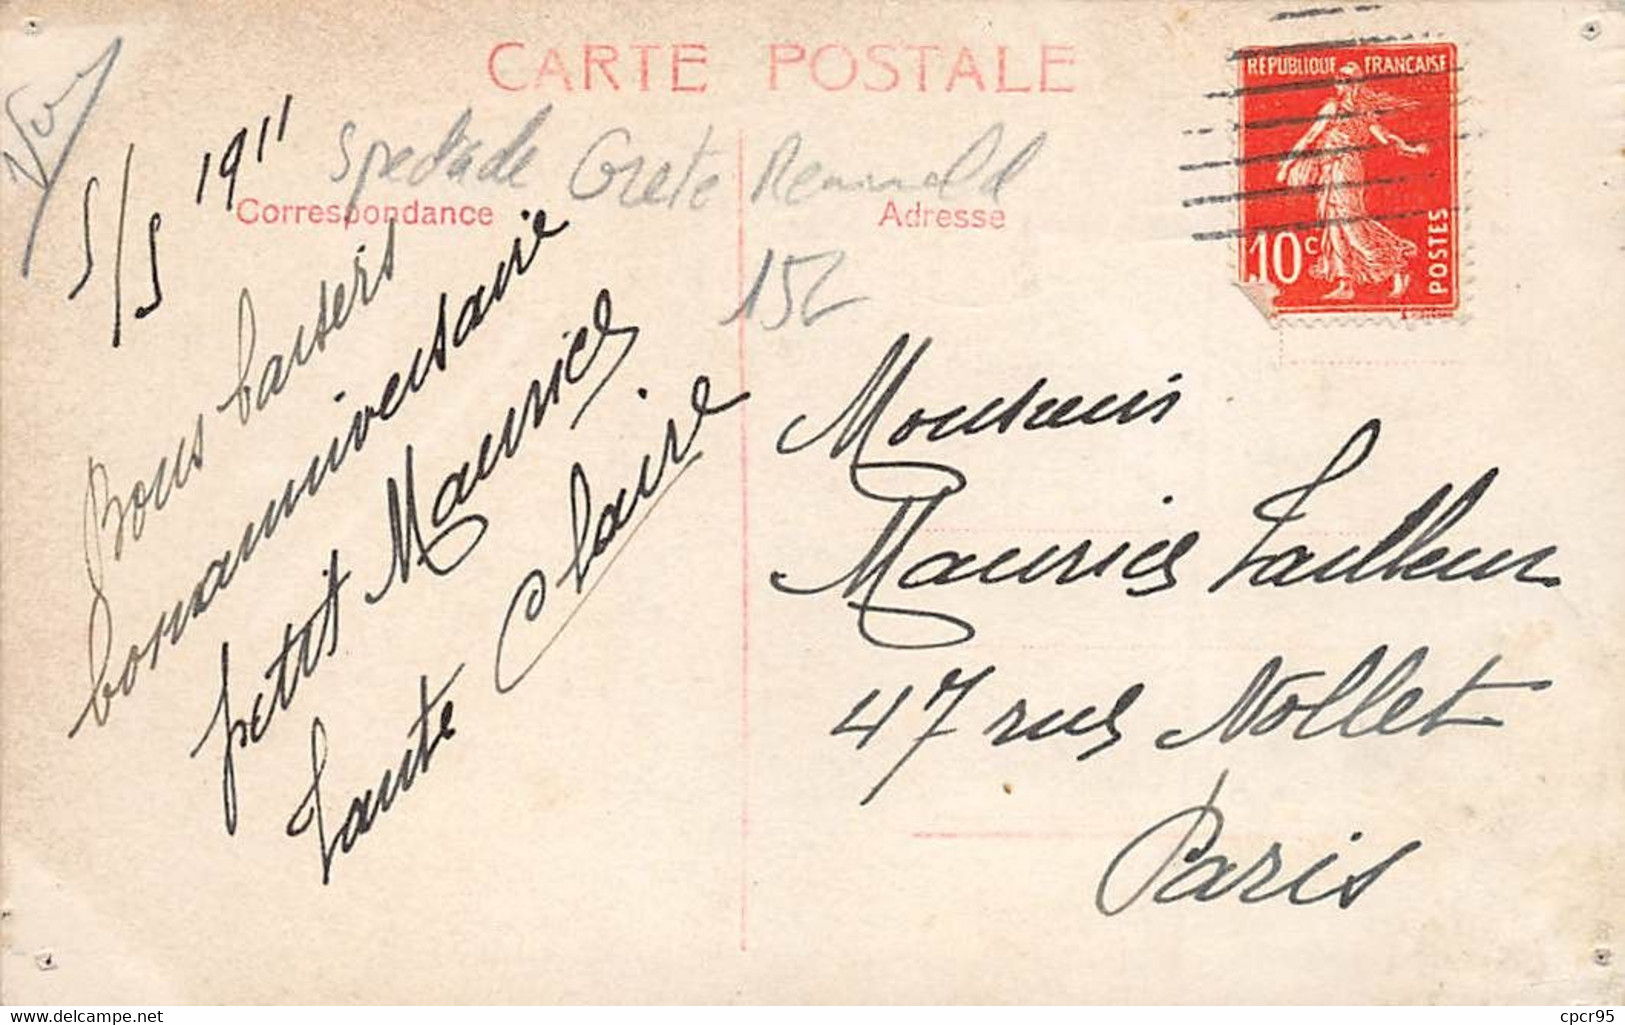 CARTE POSTALE
RÉPUBLIQUE FRANÇAISE
10c
POSTES
Spectacle Greta
152
Correspondance
Adresse
5/5 1911
Bons baisers
bon anniversaire
petit Maurice
Tante Claire
Monsieur
Maurice Tailleur
47 rue Nollet
Paris
www.delcampe.net
cpcr95